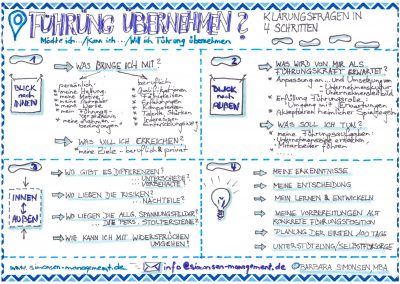 FÜHRUNG ÜBERNEHMEN?
Möchte ich../Kann ich ../Will ich Führung übernehmen
KLÄRUNGSFRAGEN IN
4 SCHRITTEN
1
BLICK
nach
INNEN
WAS BRINGE ICH MIT?
persönlich
beruflich
WAS WILL ICH ERREICHEN?
meine Ziele - beruflich & privat
2
BLICK
nach
AUßEN
WAS WIRD VON MIR ALS
FÜHRUNGSKRAFT ERWARTET?
Anpassung an und Umsetzung von
- Unternehmenskultur
- Unternehmensleitbild
Erfüllung Führungsrolle:
Umgang mit Erwartungen
Akzeptieren heimlicher Spielregeln
WAS SOLL ICH TUN?
meine Führungsaufgaben
Unternehmensziele erreichen
Mitarbeiter führen
3
INNEN
AUßEN
WO GIBT ES DIFFERENZEN?
UNTERSCHIEDE?
VORBEHALTE?
WO LIEGEN DIE RISIKEN?
NACHTEILE?
WO LIEGEN DIE ALLG. SPANNUNGSFELDER?
DIE PERS. STOLPERSTEINE?
WIE KANN ICH MIT WIDERSPRÜCHEN
UMGEHEN?
4
MEINE ERKENNTNISSE
MEINE ENTSCHEIDUNG
MEIN LERNEN & ENTWICKELN
MEINE VORBEREITUNGEN AUF
KONKRETE FÜHRUNGSPOSITION
PLANUNG DER ERSTEN 100 TAGE
UNTERSTÜTZUNG/SELBSTFÜRSORGE
www.simonsen-management.de
info@simonsen-management.de
©BARBARA SIMONSEN, MBA